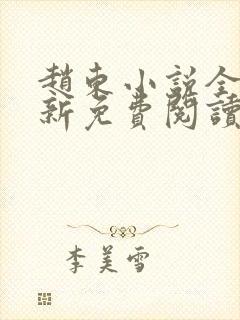 趙東小說全
新免費閱讀
李美雪